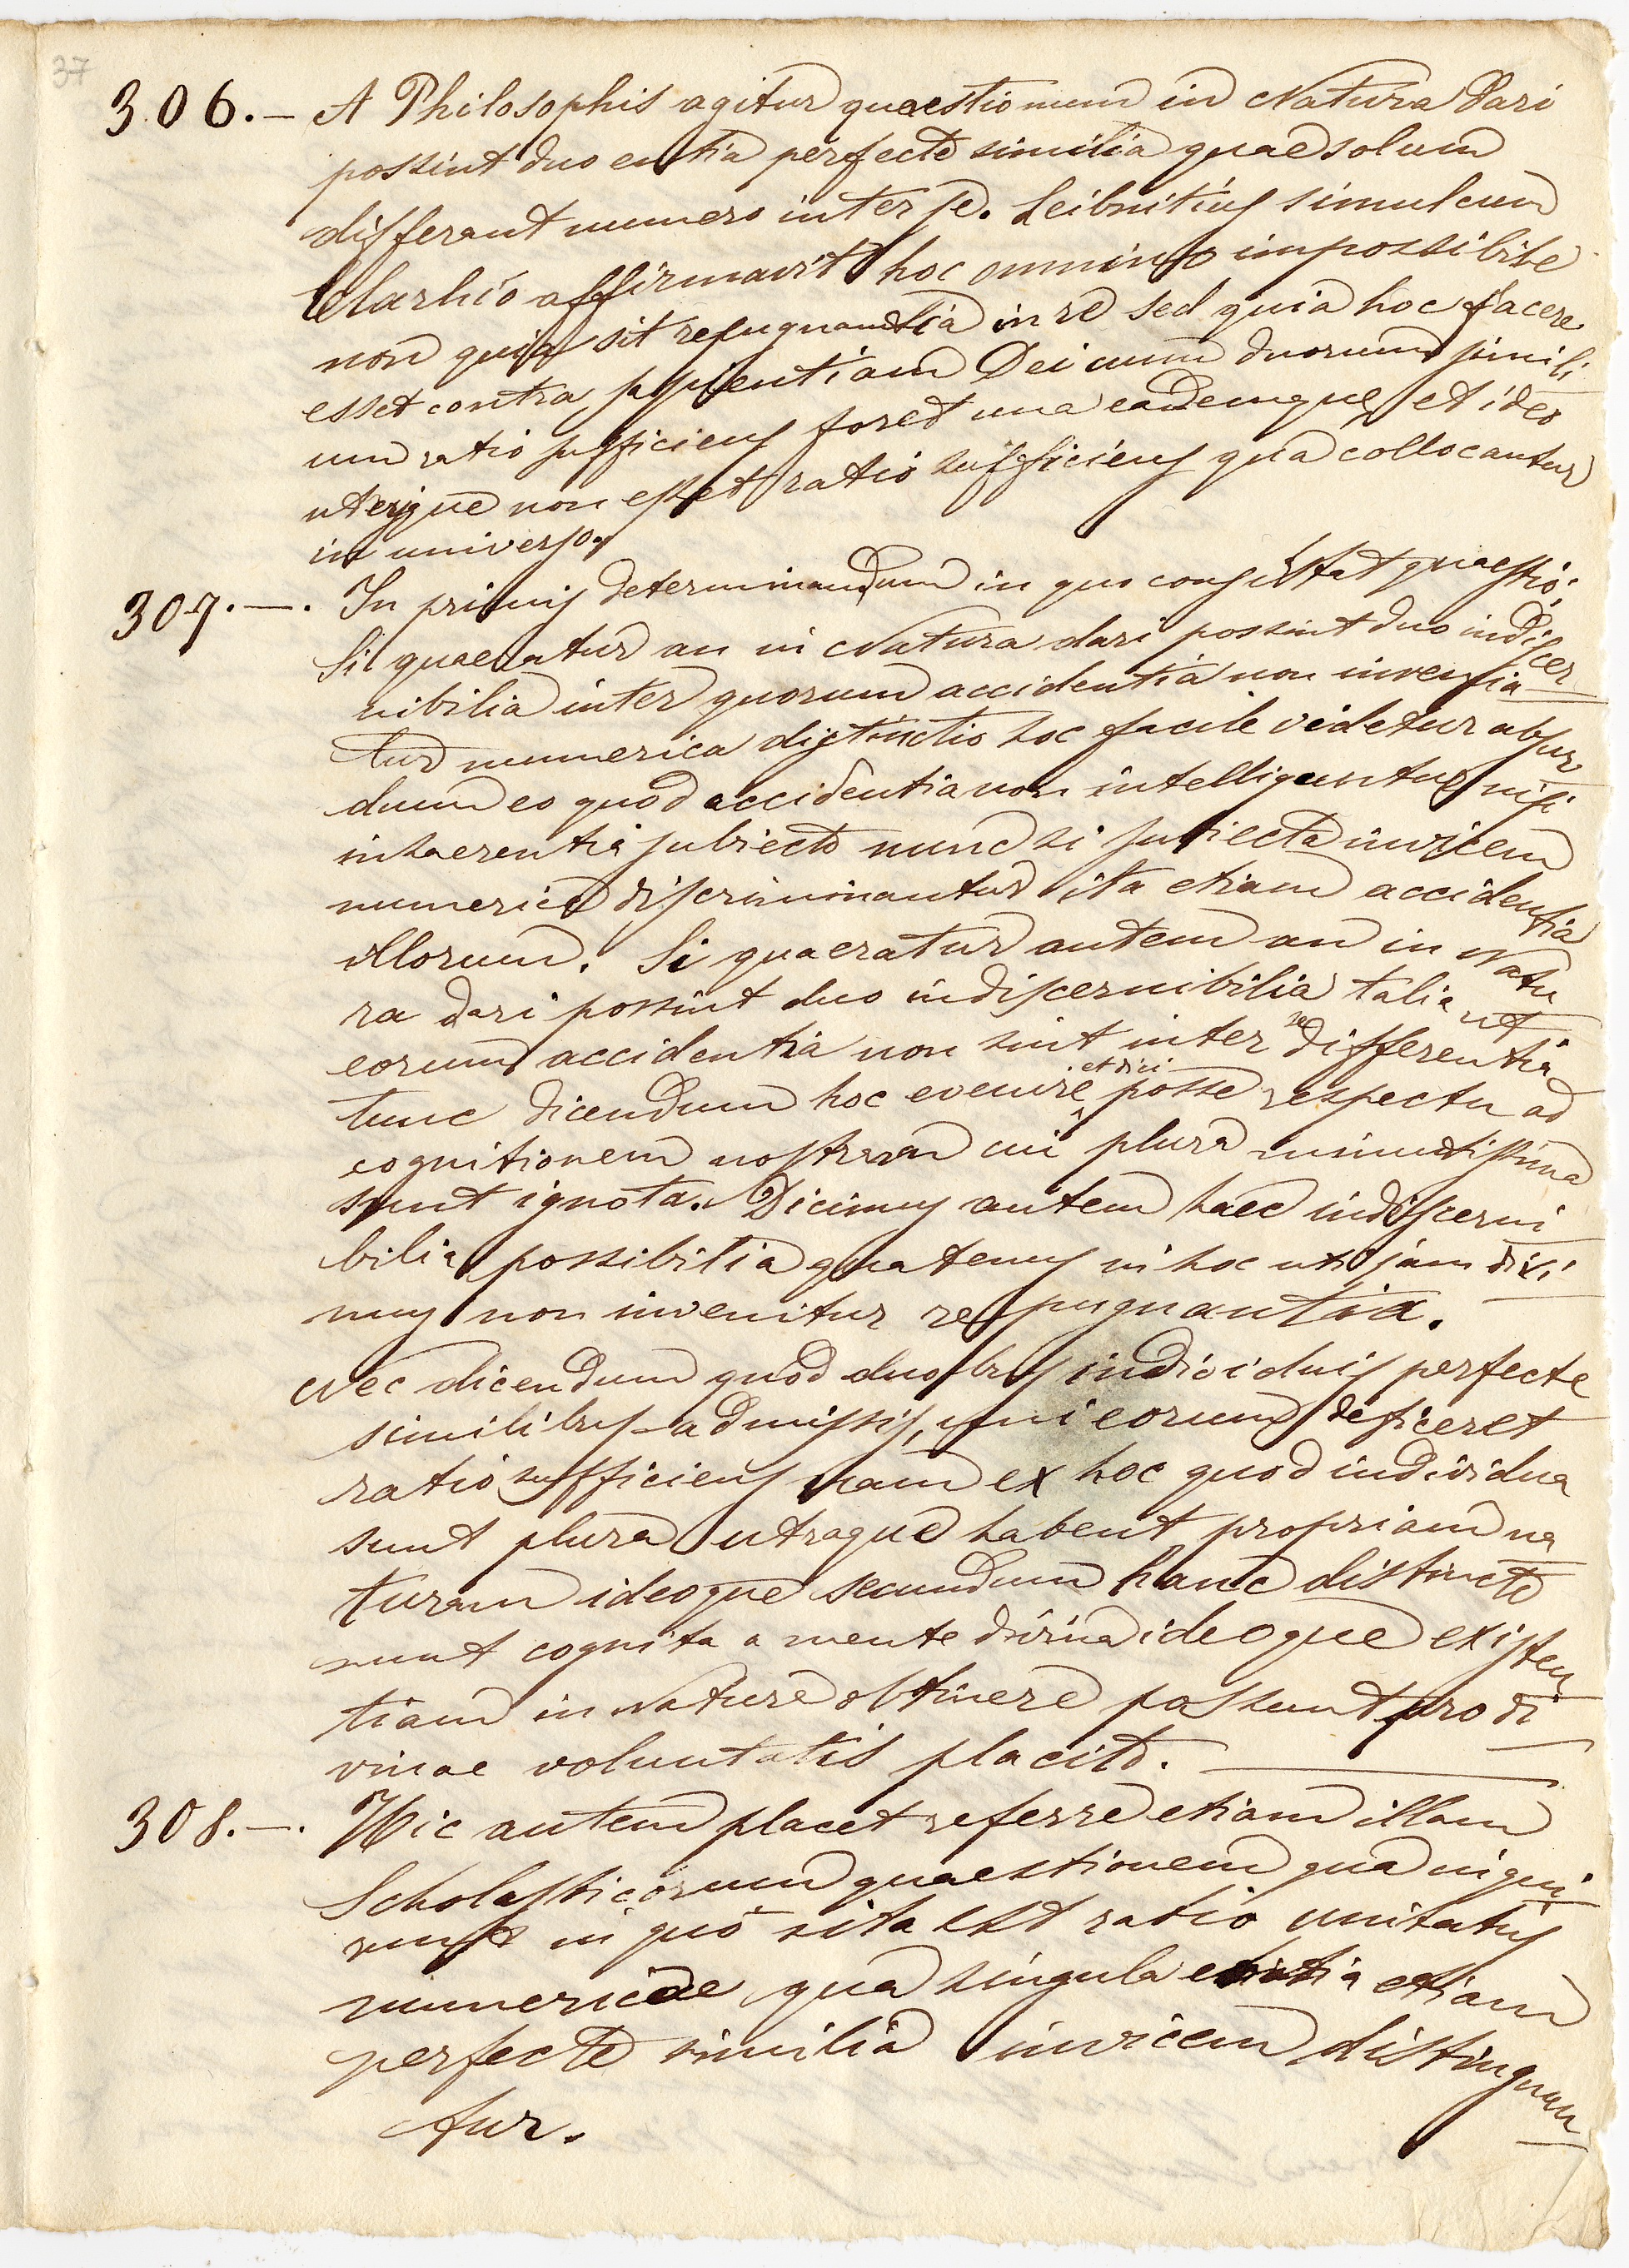 37
306.– A Philosophis agitur quaestio num in Natura dari
possint duo entia perfecte similia quae solum
differant numero inter se. Leibnitius simul cum
Clarkio affirmavit hoc omnino impossibile
non quia sit repugnantia in re sed quia hoc facere
esset contra sapientiam Dei cum duorum simili
um ratio sufficiens foret una eademque, et ideo
uterque non esset ratio sufficiens qua collocantur
in universo.
307.–. In primis determinandum in quo consistat quaestio;
Si quaeratur an in Natura dari possint duo indiscer
nibilia inter quorum accidentia non invenia
tur numerica distinctio hoc facile videtur absur
dum eo quod accidentia non intelliguntur nisi
inhaerentia subiecto nunc si subiecta invicem
numerice discriminantur ita etiam accidentia
illorum. Si quaeratur autem an in Natu
ra dari possint duo indiscernibilia talia ut
eorum accidentia non sint inter se differentia
tunc dicendum hoc evenire et dici posse respectu ad
cognitionem nostram cui plura minutissima
sunt ignota. Dicimus autem haec indiscerni
bilia possibilia quatenus in hoc uti jam dixi
mus non invenitur repugnantia.
Nec dicendum quod duobus individuis perfecte
similibus admissis, uni eorum deficeret
ratio sufficiens nam ex hoc quod individua
sunt plura utraque habent propriam na
turam ideoque secundum hanc distincte
sunt cognita a mente divina ideoque existen
tiam in Natura obtinere possunt pro di
vinae voluntatis placito.
308.–. Hic autem placet referre etiam illam
Scholasticorum quaestionem qua inqui
runt in quo sita est ratio unitatis
numericae qua singula entia etiam
perfecte similia invicem distinguun
tur.